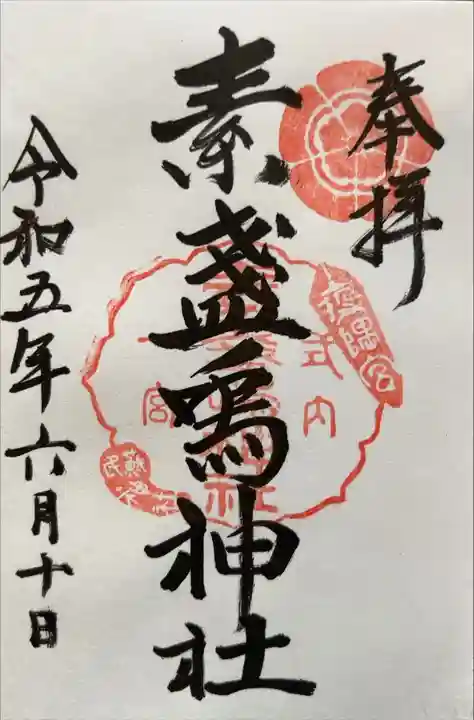 奉拝
素盞嗚神社
式内
一宮
蘇民
令和五年六月十日